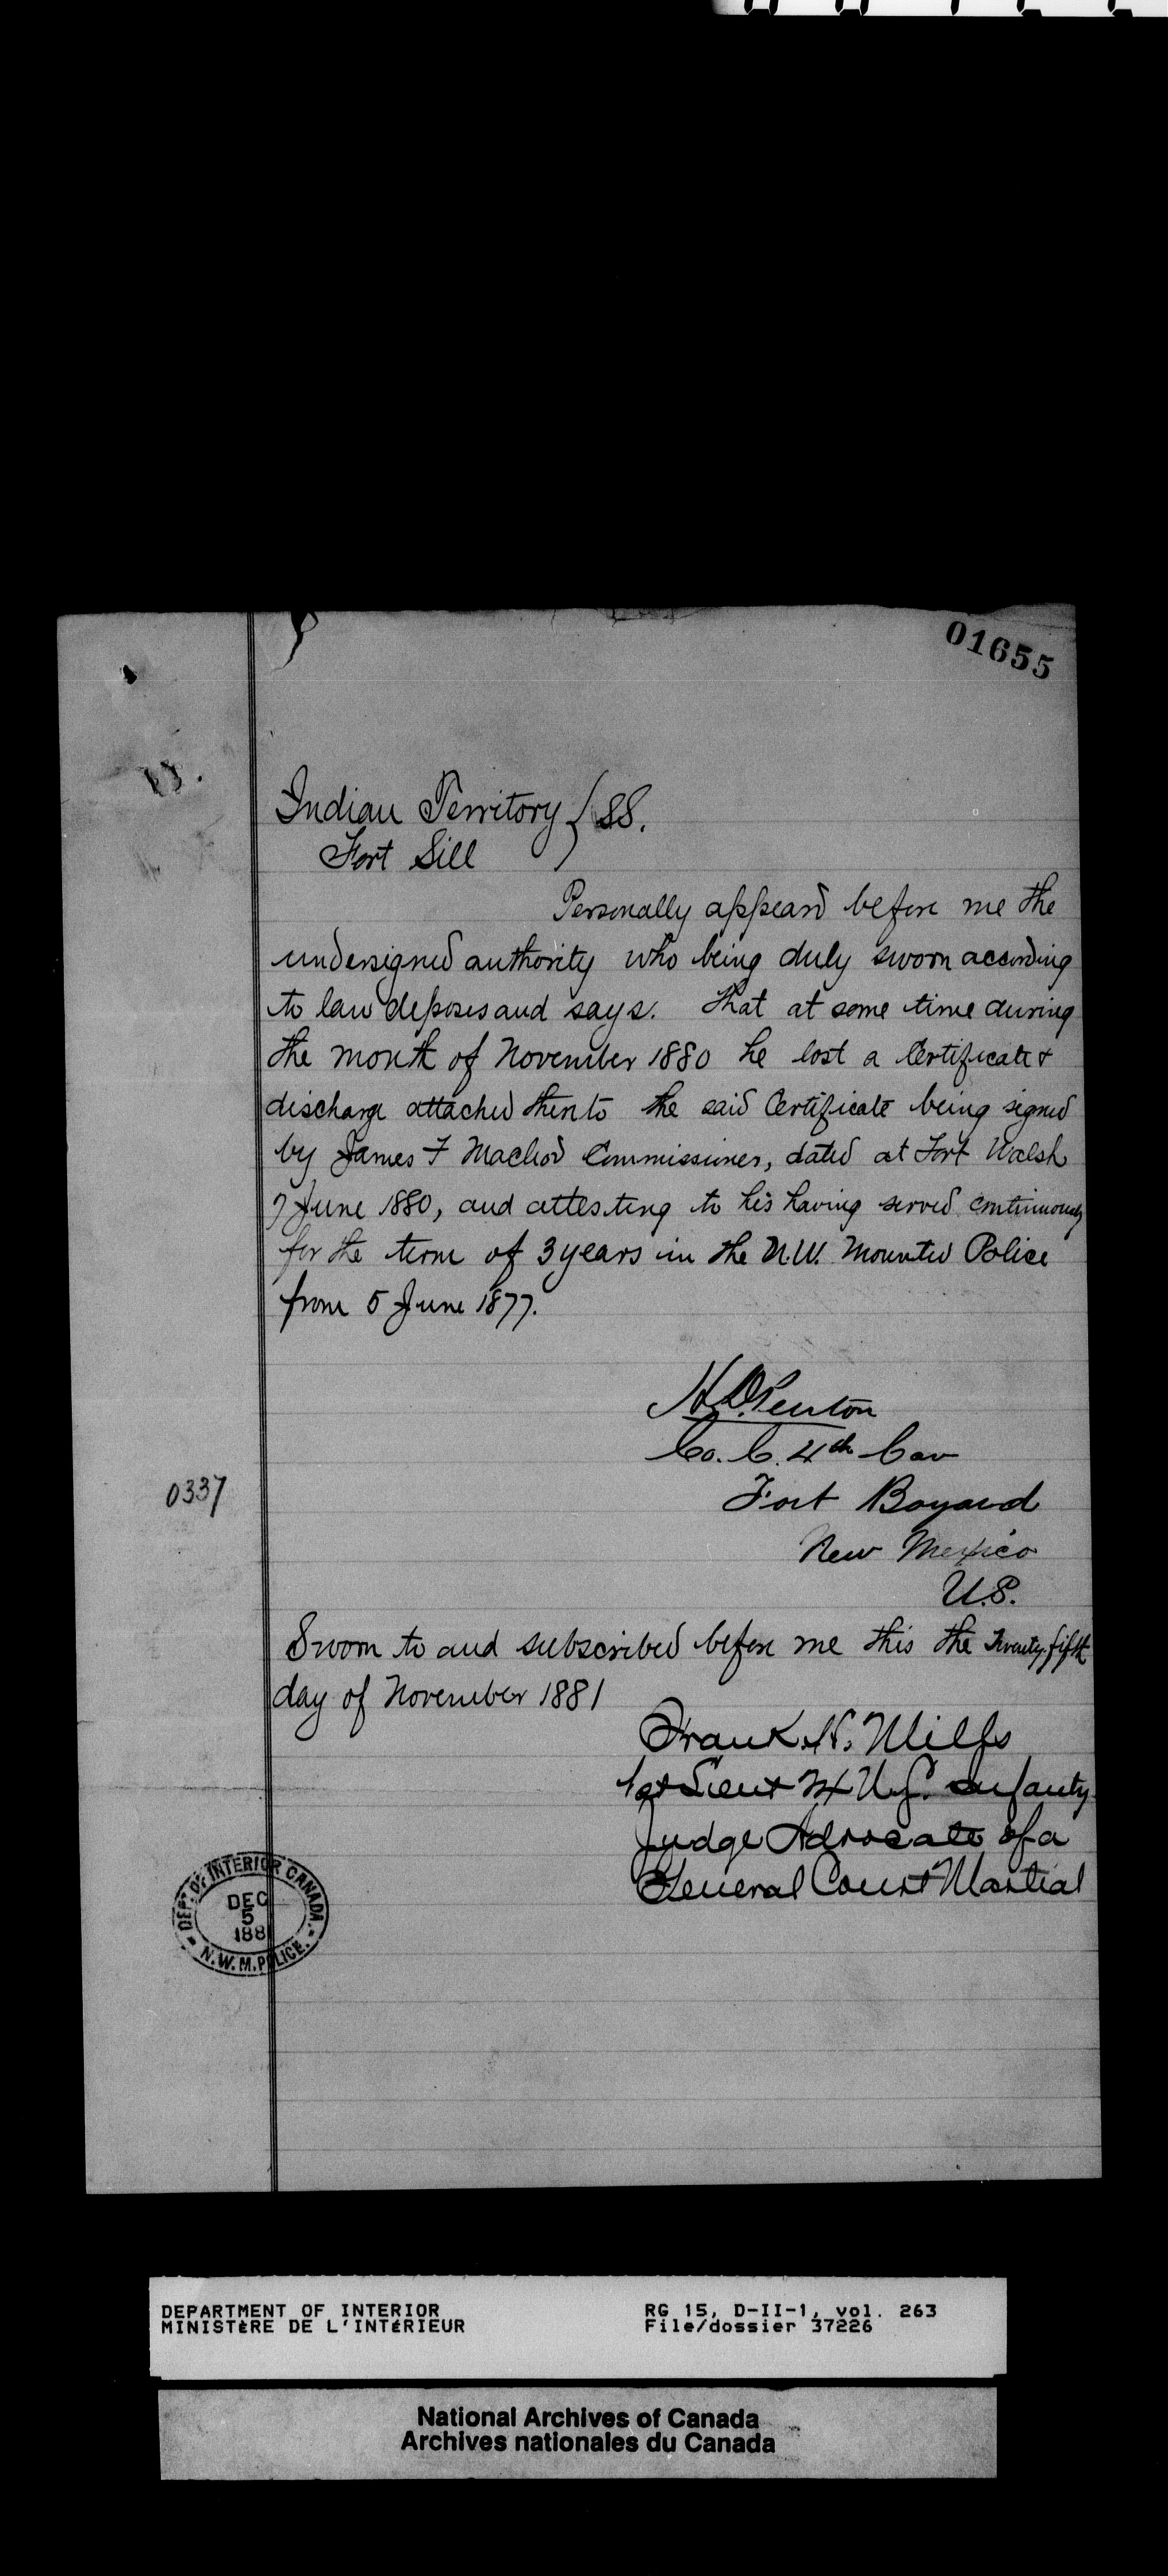 01655
Indian Territory } SS.
Fort Sill
Personally appeard before me the
undersigned authority who being duly sworn according
to law deposes and says. That at some time during
the month of November 1880 he lost a Certificate &
discharge attached thereto the said Certificate being signed
by James F Macleod Commissioner, dated at Fort Walsh
7 June 1880, and attesting to his having served continuously
for the term of 3 years in the N.W. Mounted Police
from 5 June 1877.
H.D. Penton
Co. C. 4th Cav
Fort Bayard
0337
New Mexico
U.S.
Sworn to and subscribed before me this the Twenty fifth
day of November 1881
Frank H. Mills
1st Lieut 24 U.S. Infanty
Judge Advocate of a
General Court Martial
DEPT. OF INTERIOR CANADA.
DEC
5
188
N.W.M.POLICE.
DEPARTMENT OF INTERIOR RG 15, D-II-1, vol. 263
MINISTÈRE DE L'INTÉRIEUR File/dossier 37226
National Archives of Canada
Archives nationales du Canada